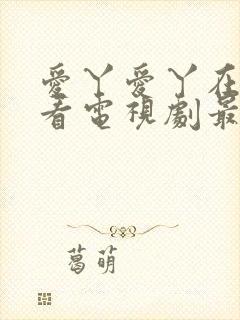 愛丫愛丫在
看電視劇最
葛萌